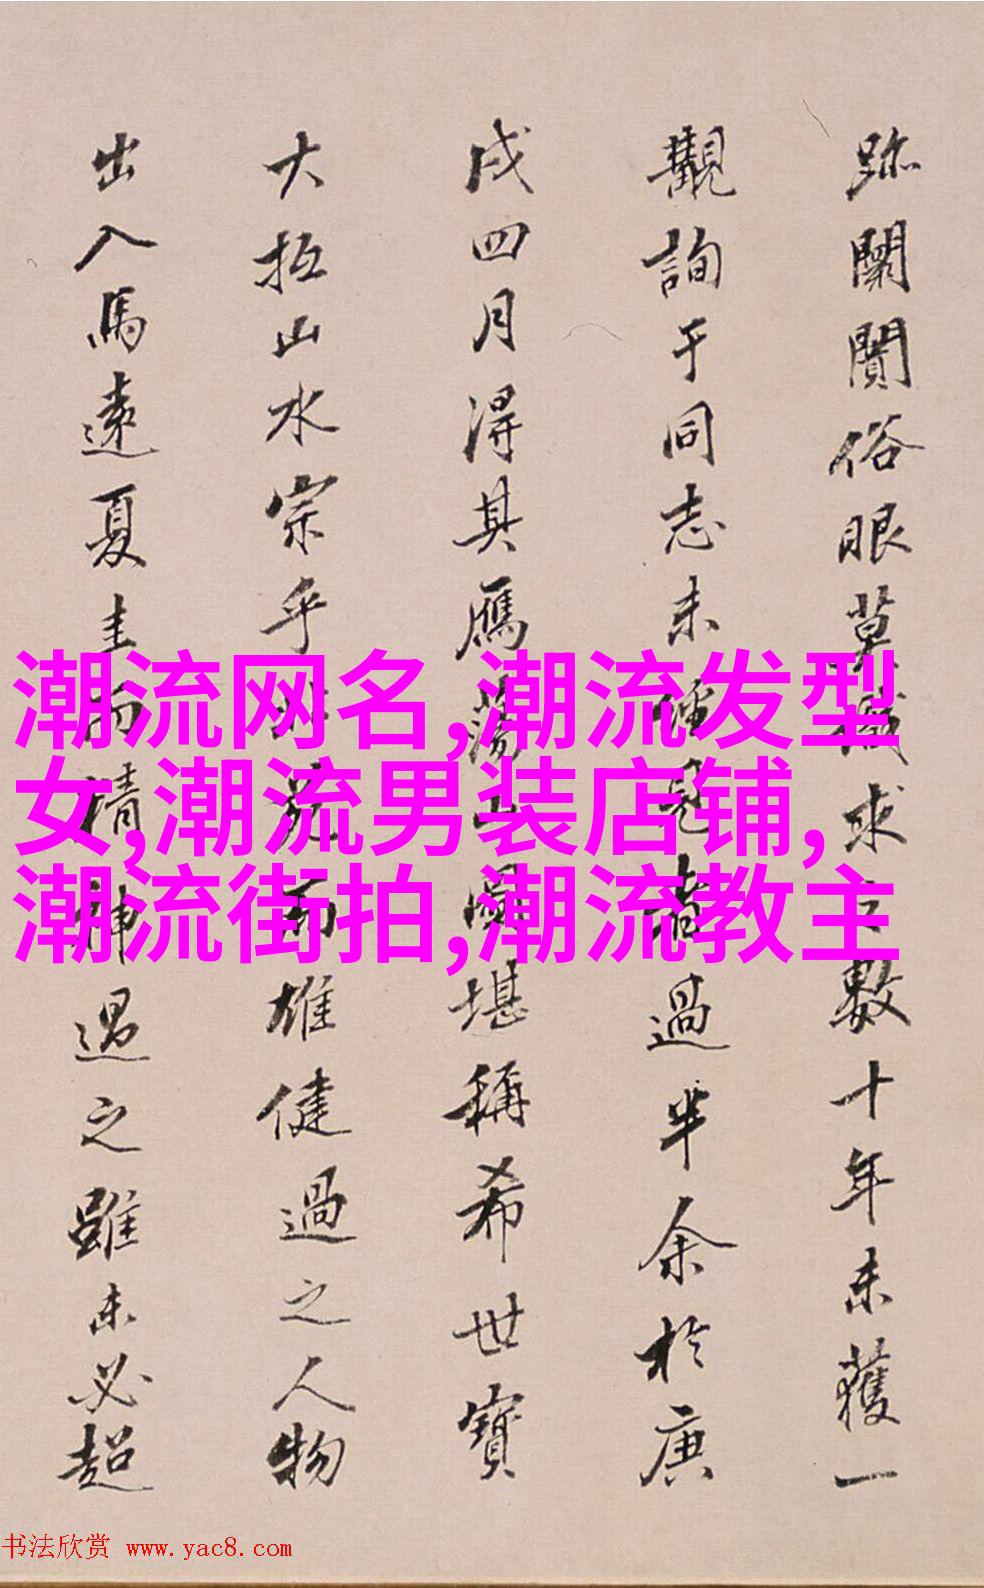 跡闤闠俗眼莫識求之數十年未獲一
觀詢于同志未經見者過半余於庚
戌四月得其鴈蕩山圖堪稱希世寶
大抵山水宗乎北苑而雄健過之人物
出入馬遠夏圭而神過之雖未必超
潮流网名,潮流发型
女,潮流男装店铺,
潮流街拍,潮流教主
书法欣赏 www.yac8.com